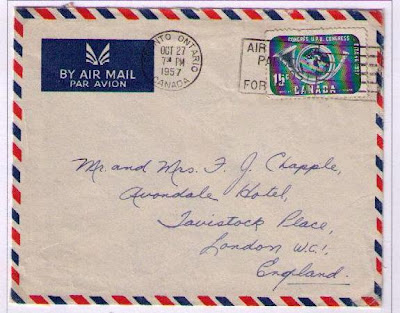 BY AIR MAIL
PAR AVION
NTO ONTARIO
OCT 27
PM
1957
CANADA
AIR
PA
FOR
CONGRÈS U.P.U. CONGRESS
OTTAWA 1957
15¢
CANADA
Mr. and Mrs. F. J. Chapple,
Avondale Hotel,
Tavistock Place,
London W.C.1.
England.